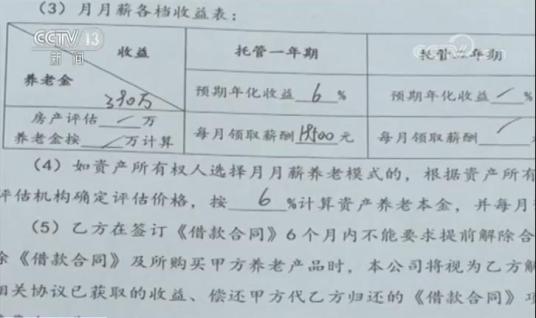 (3) 月月薪各档收益表：
CCTV 13
新闻
收益
养老金
390万
托管一年期
托管二年期
预期年化收益 6 %
预期年化收益 ／ %
房产评估 ／ 万
养老金按 ／ 万计算
每月领取薪酬 19500 元
每月领取薪酬 ／
(4) 如资产所有权人选择月月薪养老模式的，根据资产所有
评估机构确定评估价格，按 6 %计算资产养老本金，并每月
(5) 乙方在签订《借款合同》6个月内不能要求提前解除合
除《借款合同》及所购买甲方养老产品时，本公司将视为乙方解
相关协议已获取的收益、偿还甲方代乙方归还的《借款合同》项